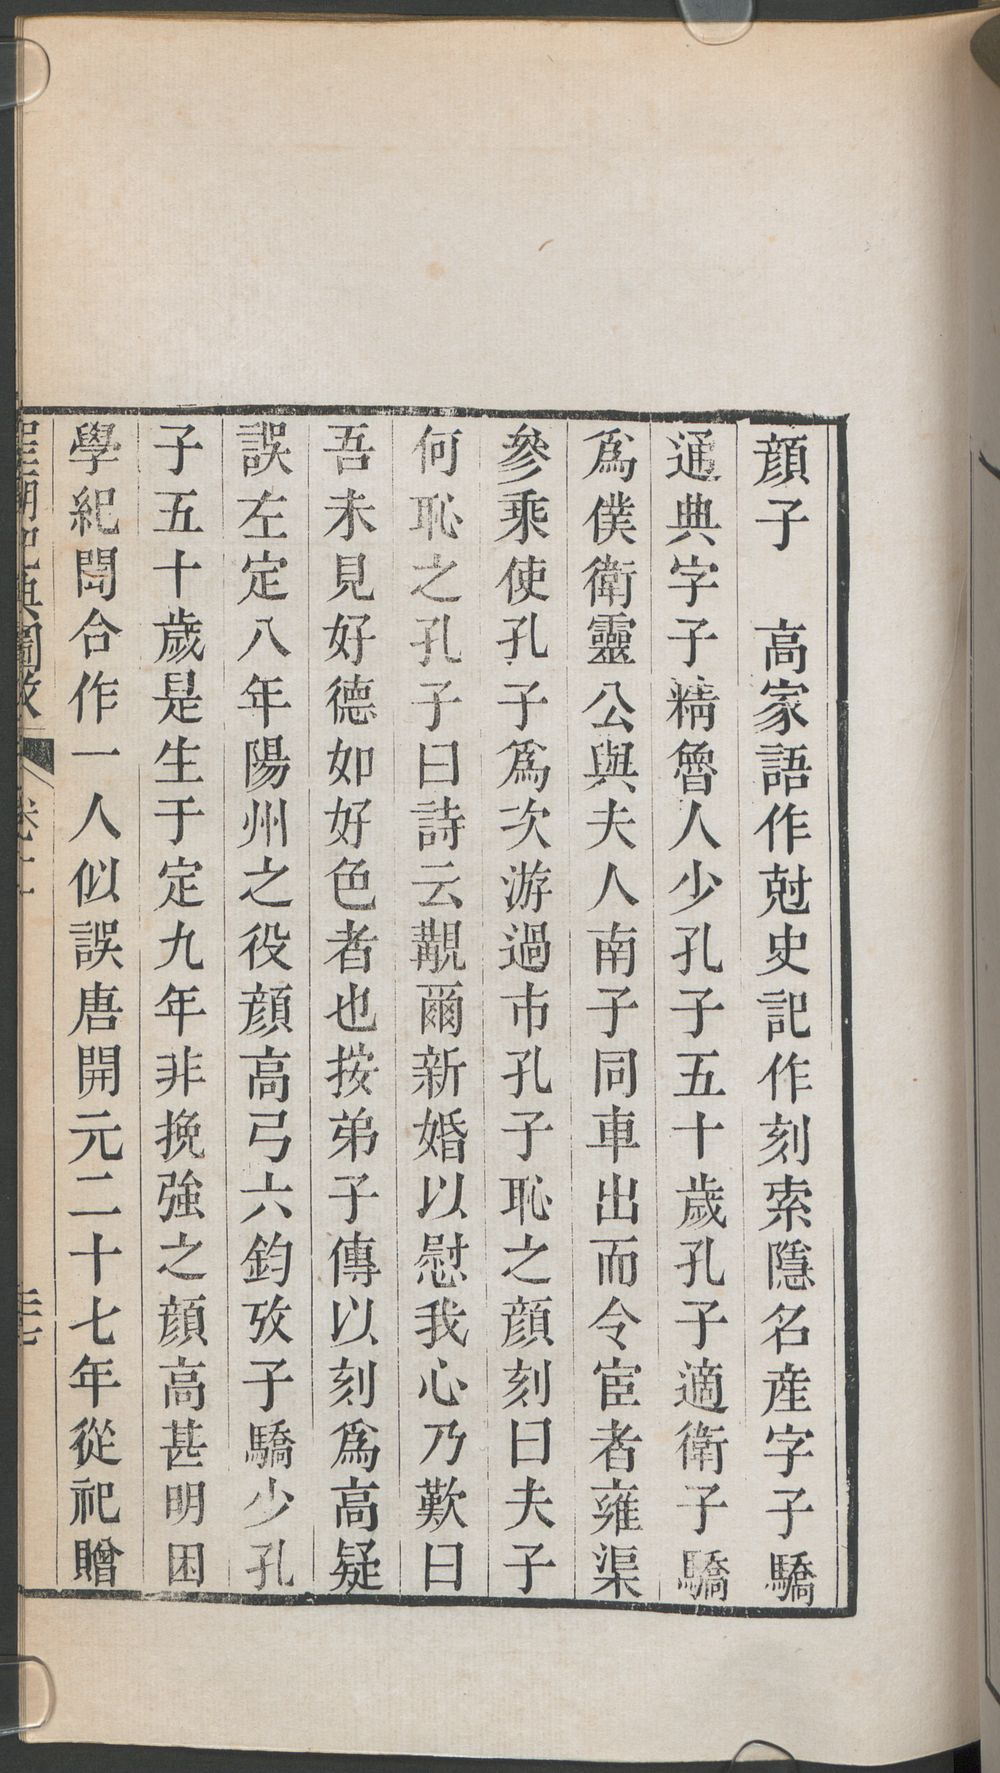 顔子　高家語作尅史記作刻索隱名産字子驕
通典字子精魯人少孔子五十歲孔子適衛子驕
爲僕衛靈公與夫人南子同車出而令宦者雍渠
參乘使孔子爲次游過市孔子恥之顔刻曰夫子
何恥之孔子曰詩云覯爾新婚以慰我心乃歎曰
吾未見好德如好色者也按弟子傳以刻爲高疑
誤左定八年陽州之役顔高弓六鈞攷子驕少孔
子五十歲是生于定九年非挽強之顔高甚明困
學紀聞合作一人似誤唐開元二十七年從祀贈